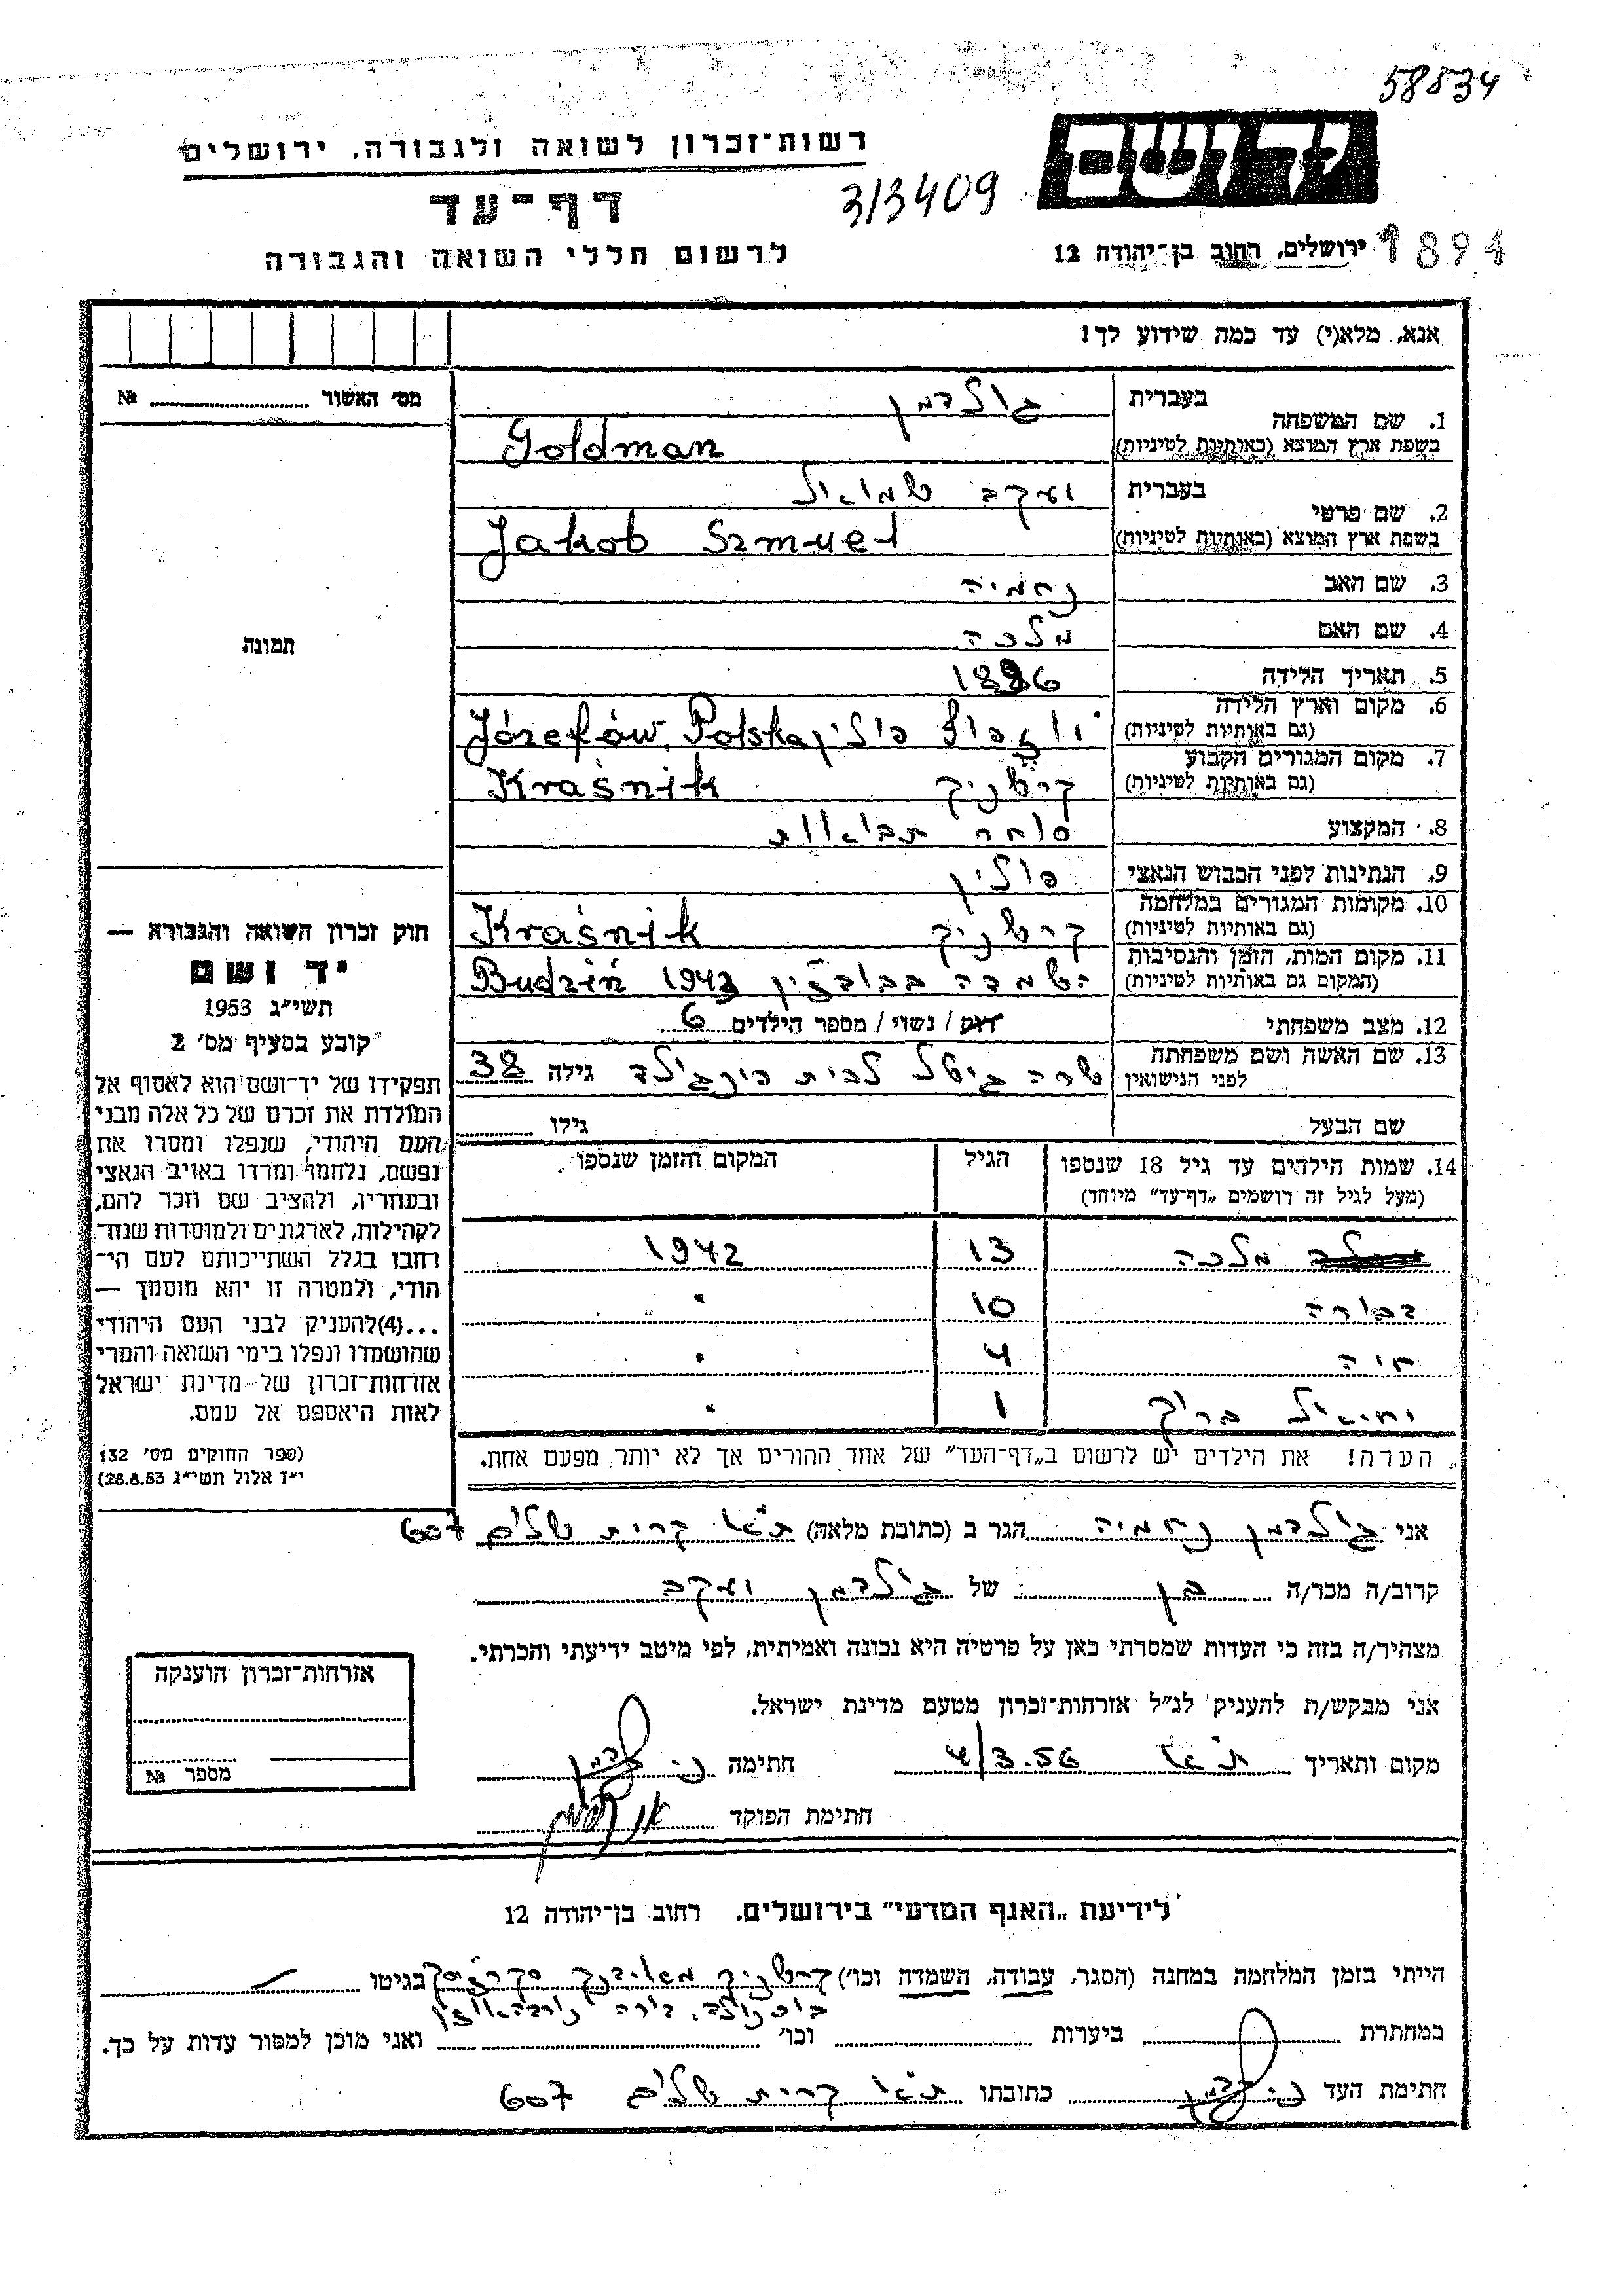 58834
רשות-זכרון לשואה ולגבורה, ירושלים
יד ושם
דף-עד
3/3409
לרשום חללי השואה והגבורה
ירושלים, רחוב בן-יהודה 12
1894
אנא, מלא(י) עד כמה שידוע לך!
מס' האשור № 
1. שם המשפחה
בעברית גולדמן
בשפת ארץ המוצא (באותיות לטיניות) Goldman
2. שם פרטי
בעברית יעקב שמואל
בשפת ארץ המוצא (באותיות לטיניות) Jakob Szmuel
3. שם האב נחמיה
4. שם האם מלכה
5. תאריך הלידה
6. מקום וארץ הלידה (גם באותיות לטיניות) יוזפוף פולין Józefów, Polska
7. מקום המגורים הקבוע (גם באותיות לטיניות) קרשניק Kraśnik
8. המקצוע סוחר תבואות
9. הנתינות לפני הכבוש הנאצי פולין
10. מקומות המגורים במלחמה (גם באותיות לטיניות) קרשניק Kraśnik
11. מקום המות, הזמן והנסיבות (המקום גם באותיות לטיניות) השמדה בבודזין 1943 Budziń
12. מצב משפחתי רווק / נשוי / מספר הילדים 6
13. שם האשה ושם משפחתה לפני הנישואין שרה גיטל לבית גילה 38
שם הבעל גילו
14. שמות הילדים עד גיל 18 שנספו (מעל לגיל זה רושמים „דף-עד” מיוחד) הגיל המקום והזמן שנספו
מלכה 13 1942
דבורה 10 "
חיה 4 "
יחיאל ברוך 1 "
הערה! את הילדים יש לרשום ב„דף-העד” של אחד ההורים אך לא יותר מפעם אחת.
תמונה
חוק זכרון השואה והגבורה —
יד ושם
תשי״ג 1953
קובע בסעיף מס' 2
תפקידו של יד-ושם הוא לאסוף אל
המולדת את זכרם של כל אלה מבני
העם היהודי, שנפלו ומסרו את
נפשם, נלחמו ומרדו באויב הנאצי
ובעוזריו, ולהציב שם וזכר להם,
לקהילות, לארגונים ולמוסדות שנח-
רבו בגלל השתייכותם לעם הי-
הודי, ולמטרה זו יהא מוסמך —
...(4)להעניק לבני העם היהודי
שהושמדו ונפלו בימי השואה והמרי
אזרחות-זכרון של מדינת ישראל
לאות היאספם אל עמם.
(ספר החוקים מס' 132
י״ז אלול תשי״ג 28.8.53)
אני גולדמן נחמיה הגר ב (כתובת מלאה) ת״א קרית שלום 607
קרוב/ה מכר/ה בן של גולדמן יעקב
מצהיר/ה בזה כי העדות שמסרתי כאן על פרטיה היא נכונה ואמיתית, לפי מיטב ידיעתי והכרתי.
אני מבקש/ת להעניק לנ״ל אזרחות-זכרון מטעם מדינת ישראל.
מקום ותאריך ת״א 4/3.56 חתימה
חתימת הפוקד
אזרחות-זכרון הוענקה
מספר №
לידיעת „האגף המדעי” בירושלים, רחוב בן-יהודה 12
הייתי בזמן המלחמה במחנה (הסגר, עבודה, השמדה וכו') קרשניק מאידנק בגיטו
בוכנולד, דורה נורדהאוזן
במחתרת ביערות וכו' ואני מוכן למסור עדות על כך.
חתימת העד כתובתו ת״א קרית שלום 607